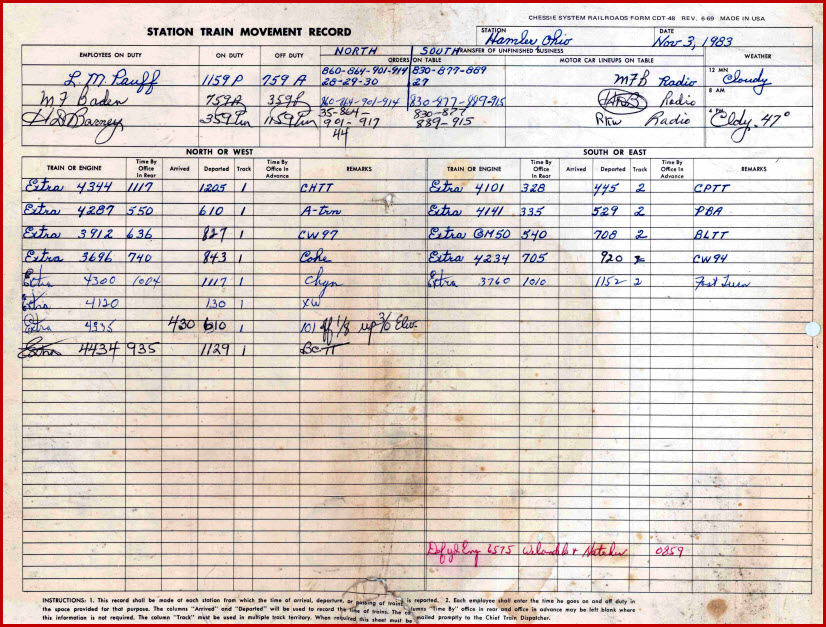 CHESSIE SYSTEM RAILROADS FORM CDT-48 REV. 6-69 MADE IN USA
STATION TRAIN MOVEMENT RECORD
STATION Hamler Ohio
DATE Nov 3, 1983
EMPLOYEES ON DUTY ON DUTY OFF DUTY
NORTH SOUTH
TRANSFER OF UNFINISHED BUSINESS
ORDERS ON TABLE MOTOR CAR LINEUPS ON TABLE WEATHER
L. M. Pauff 1159 P 759 A 860-864-901-914 830-877-889 MFB Radio 12 MN Cloudy
28-29-30 27
M F Baden 759A 359P 860-864-901-914 830-877-889-915 Radio 8 AM
H D Barney 359Pm 1159Pm 35-864- 830-877- RKW Radio 4 PM Cldy. 47°
901-917 889-915
44
NORTH OR WEST SOUTH OR EAST
TRAIN OR ENGINE Time By Office In Rear Arrived Departed Track Time By Office In Advance REMARKS TRAIN OR ENGINE Time By Office In Rear Arrived Departed Track Time By Office In Advance REMARKS
Extra 4344 1117 1205 1 CHTT Extra 4101 328 445 2 CPTT
Extra 4287 550 610 1 A-trn Extra 4141 335 529 2 PBA
Extra 3912 636 827 1 CW97 Extra GM50 540 708 2 BLTT
Extra 3696 740 843 1 Coke Extra 4234 705 920 2 CW94
Extra 4300 1004 1117 1 Chyn Extra 3760 1010 1152 2 Fost Turn
Extra 4120 130 1 XW
Extra 4335 430 610 1 101 off 1/8 up 3/0 Elev.
Extra 4434 935 1129 1 BCTT
Eng 6575 0859
INSTRUCTIONS: 1. This record shall be made at each station from which the time of arrival, departure, or passing of trains is reported. 2. Each employee shall enter the time he goes on and off duty in
the space provided for that purpose. The columns "Arrived" and "Departed" will be used to record the time of trains. The columns "Time By" office in rear and office in advance may be left blank where
this information is not required. The column "Track" must be used in multiple track territory. When required, this sheet must be mailed promptly to the Chief Train Dispatcher.